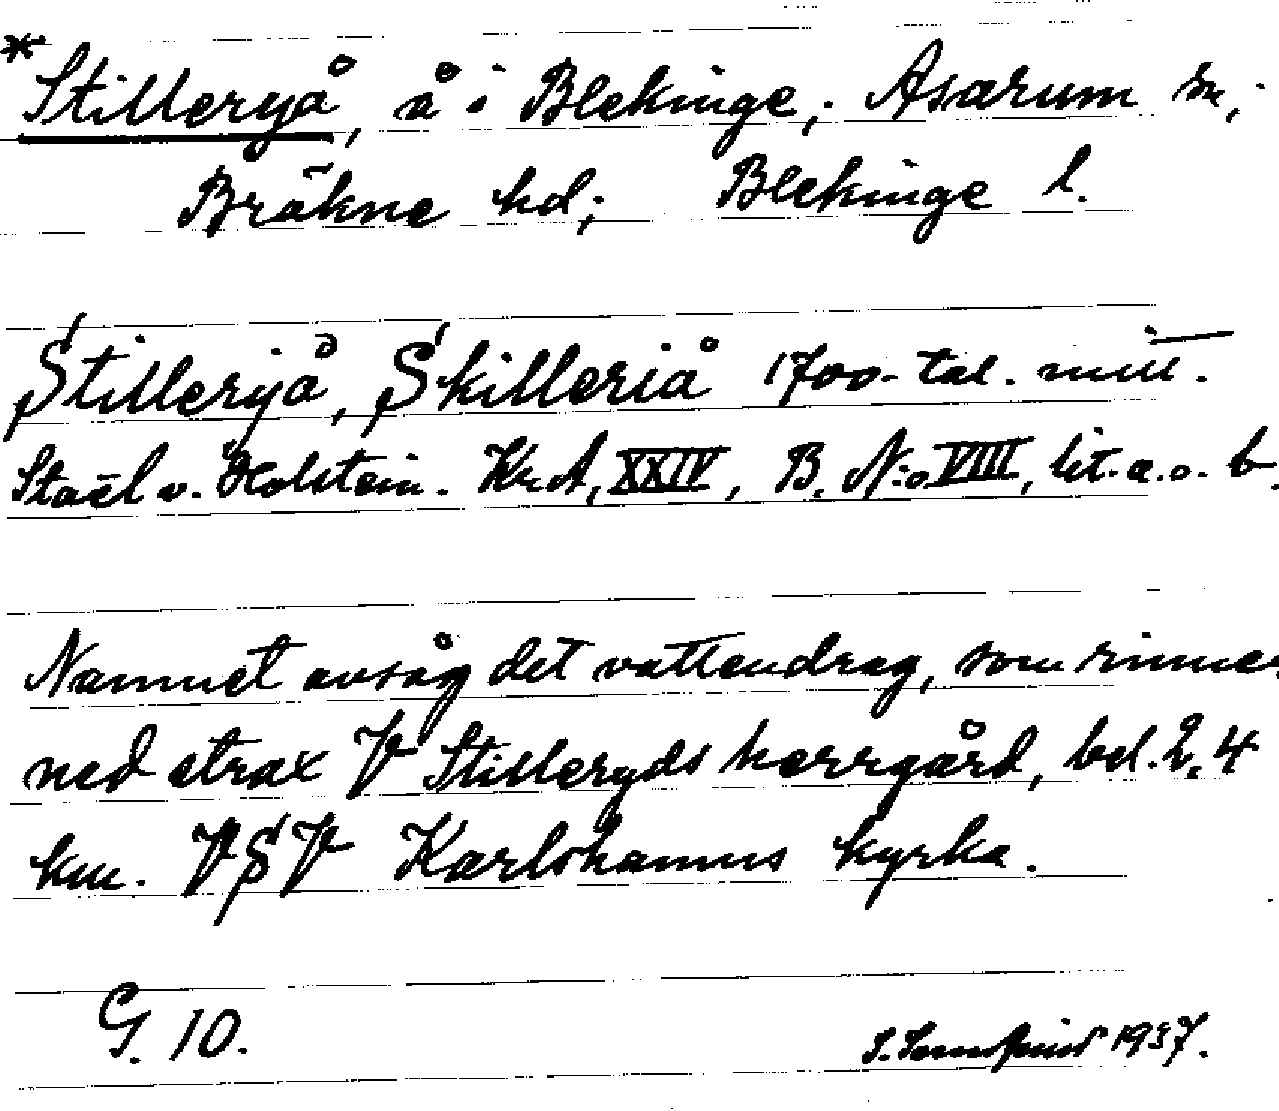 *Stilleryå, å i Blekinge, Asarum sn,
Bräkne hd; Blekinge l.
Stilleryå, Skilleriå 1700-tal. mitt.
Staël v. Holstein. Kr. A, XXIV, B. N:o VIII, lit. a. o. b.
Namnet avsåg det vattendrag, som rinner
ned strax V Stilleryds herrgård, bel. 2,4
km. VSV Karlshamns kyrka.
G. 10.
1937.